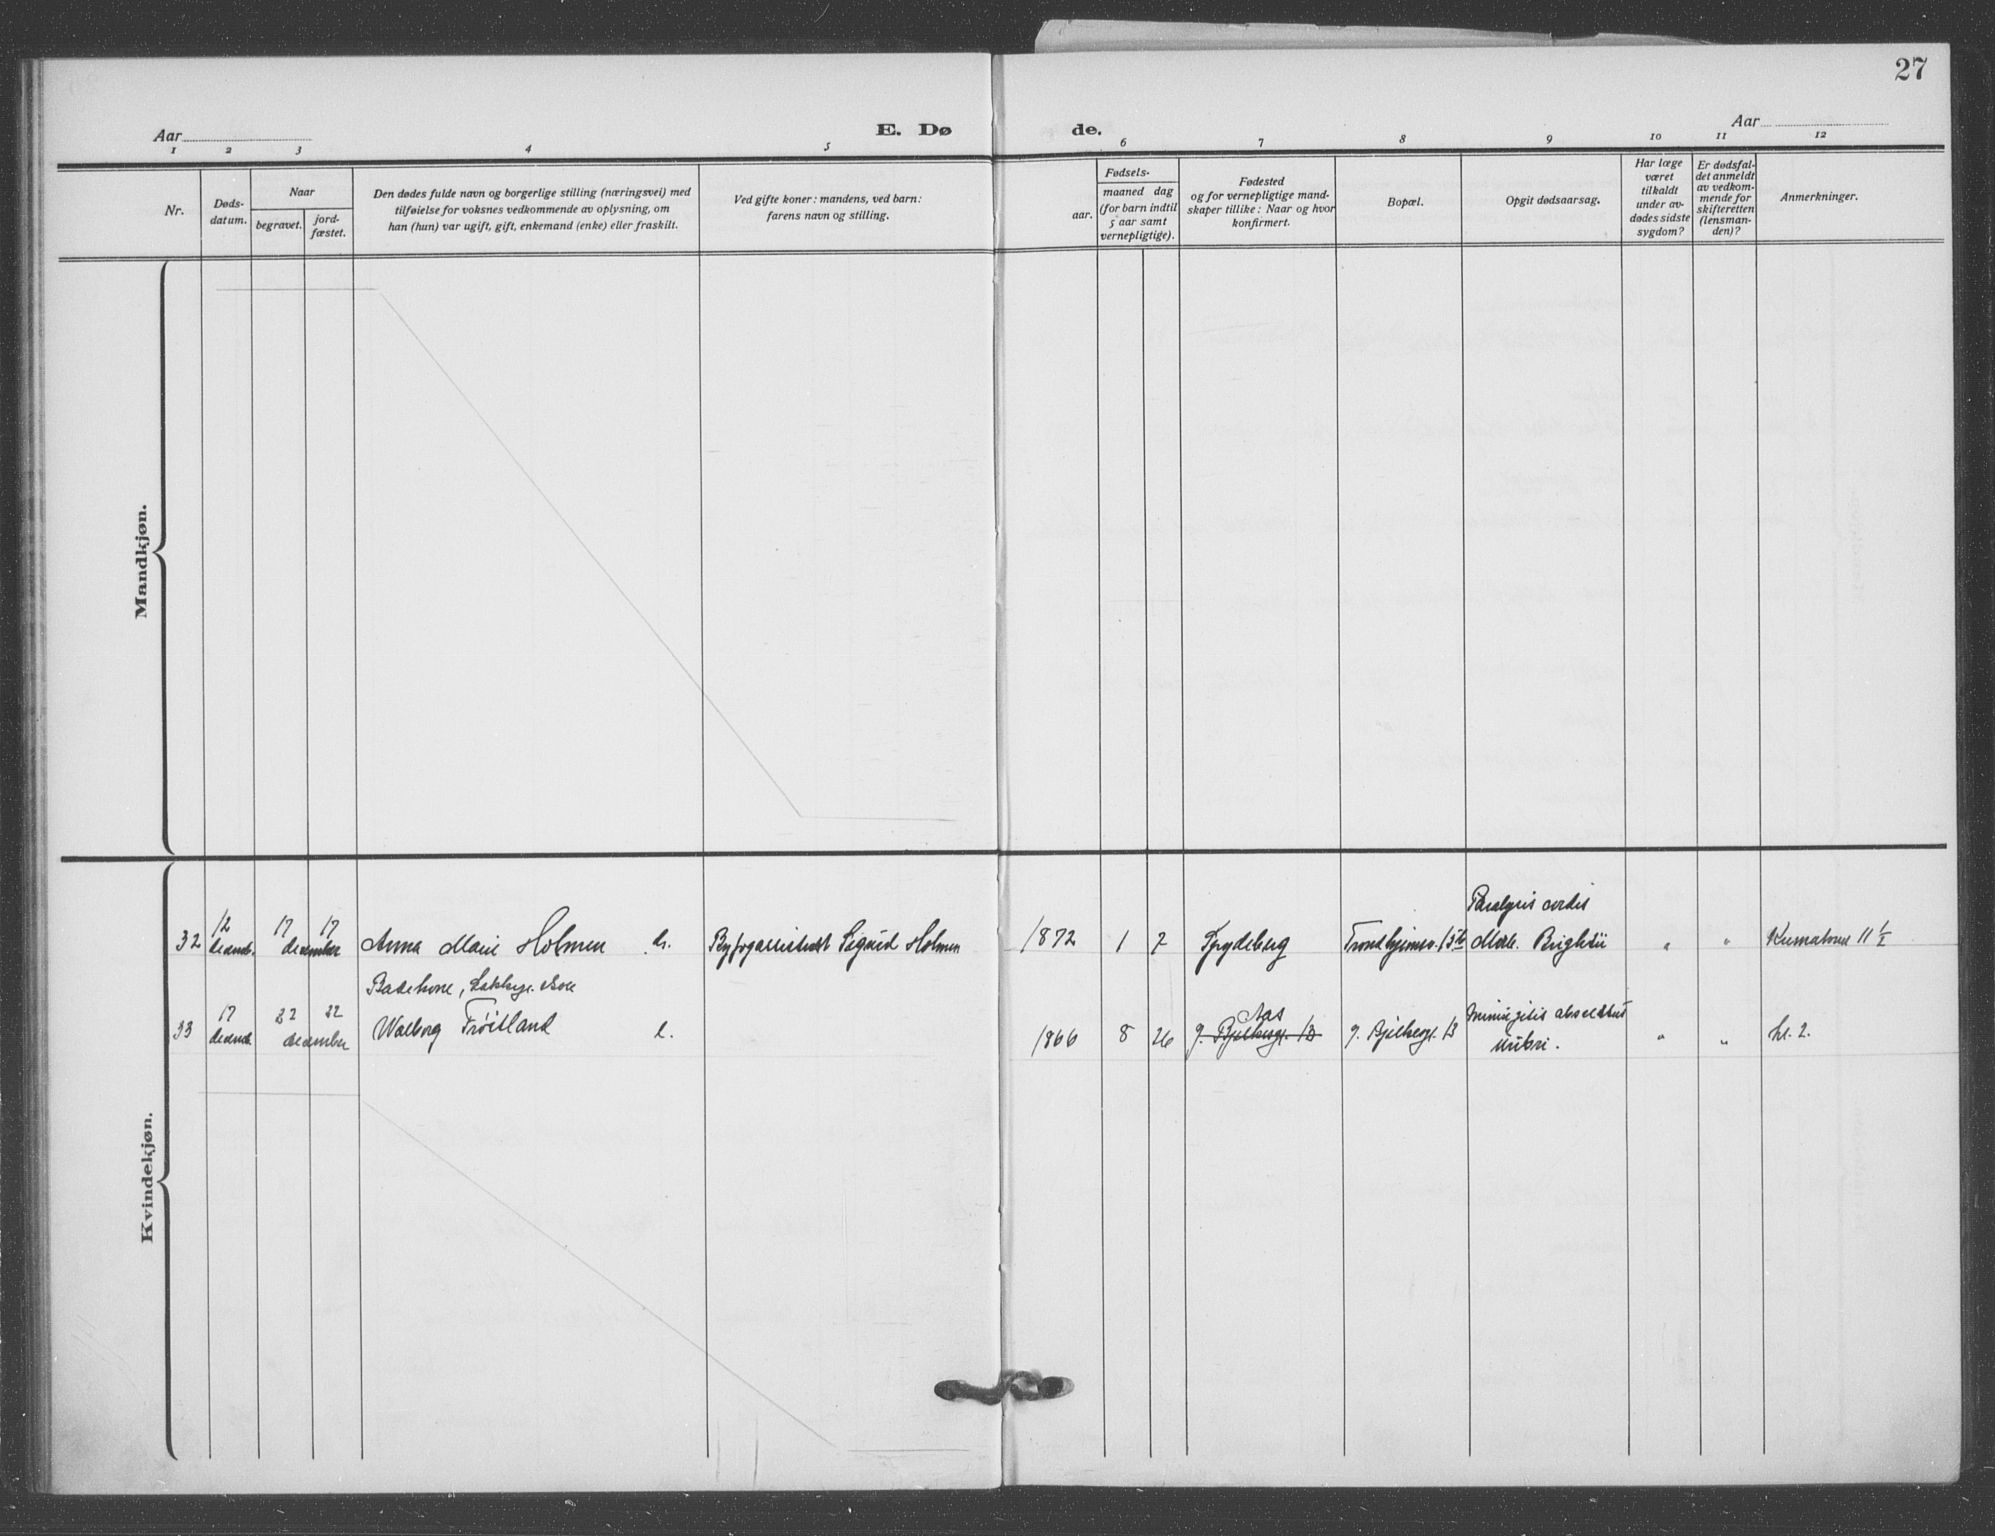 27
Aar
E. Dø de.
Aar
1 2 3 4 5 6 7 8 9 10 11 12
Nr.
Døds-
datum.
Naar
begravet.
jord-
fæstet.
Den dødes fulde navn og borgerlige stilling (næringsvei) med
tilføielse for voksnes vedkommende av oplysning, om
han (hun) var ugift, gift, enkemand (enke) eller fraskilt.
Ved gifte koner: mandens, ved barn:
farens navn og stilling.
Fødsels-
aar.
maaned dag
(for barn indtil
5 aar samt
vernepligtige).
Fødested
og for vernepligtige mand-
skaper tillike: Naar og hvor
konfirmert.
Bopæl.
Opgit dødsaarsag.
Har læge
været
tilkaldt
under av-
dødes sidste
sygdom?
Er dødsfal-
det anmeldt
av vedkom-
mende for
skifteretten
(lensman-
den)?
Anmerkninger.
Mandkjøn.
Kvindekjøn.
12 17 17 Paralysis cordis
32 decemb. december Anna Marie Holmen Sigurd Holmen 1872 1 7 Trondhjemsv. 13 Morb. Brightii " "
Badekone,
17 22 22 Aas
33 decemb. december Walborg Trøitland 1866 8 26 g. 13 g. 13 " " kl. 2.